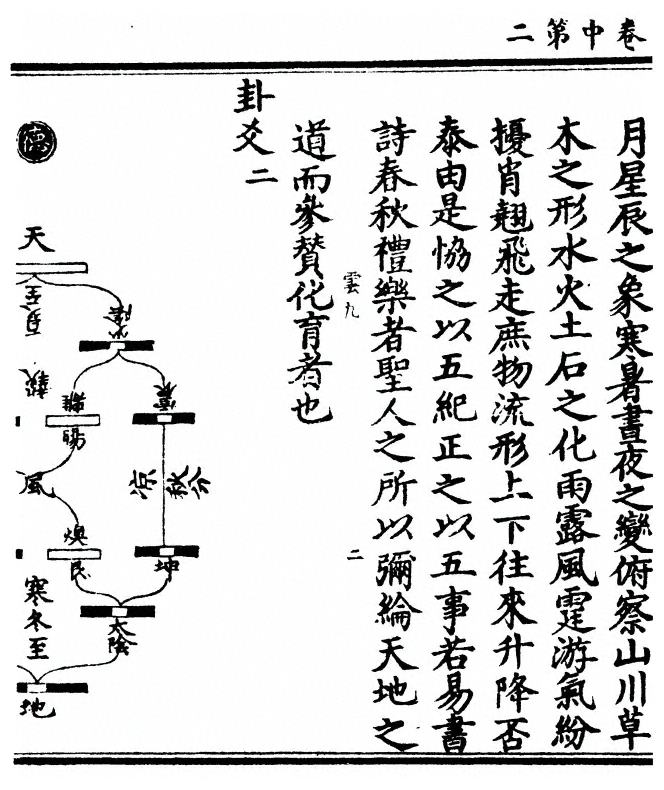 卷中第二
月星辰之象寒暑晝夜之變俯察山川草
木之形水火土石之化雨露風霆游氣紛
擾肖翹飛走庶物流形上下往來升降否
泰由是恊之以五紀正之以五事若易書
詩春秋禮樂者聖人之所以彌綸天地之
雲九
二
道而參賛化育者也
卦爻二
德
天
夏至
離
陽
秋分
凉
風
燠
艮
坤
太陰
寒冬至
地